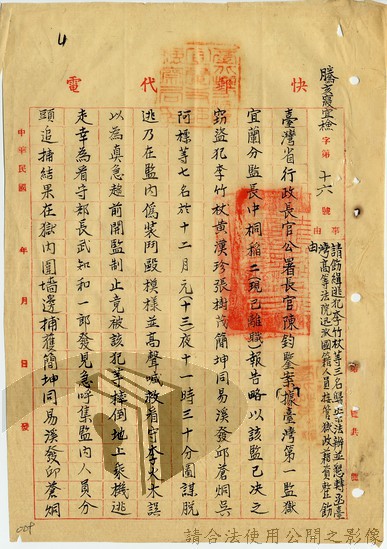 快郵代電
勝亥寢宜檢字第十六號
事由
請飭緝逃犯李竹杖等三名歸案法辦並懇轉函臺
灣高等法院迅派國籍人員接管獄政藉資整飭
臺灣省行政長官公署長官陳鈞鑒案據臺灣第一監獄
宜蘭分監長中桐稻二現已離職報告略以該監已決之
竊盜犯李竹杖黃漢珍張樹茂簡坤同易溪發邱蒼炯吳
阿標等七名於十二月元(十三)夜十一時三十分圖謀脫
逃乃在監內偽裝鬥毆模樣並高聲喊救看守李火木誤
以為真急趨前開監制止竟被該犯等摔倒地上乘機逃
走幸為看守部長武知和一郎發見急呼集監內人員分
頭追捕結果在獄內圍墻邊捕獲簡坤同易溪發邱蒼炯
中華民國 年 月 日發
4
008
請合法使用公開之影像